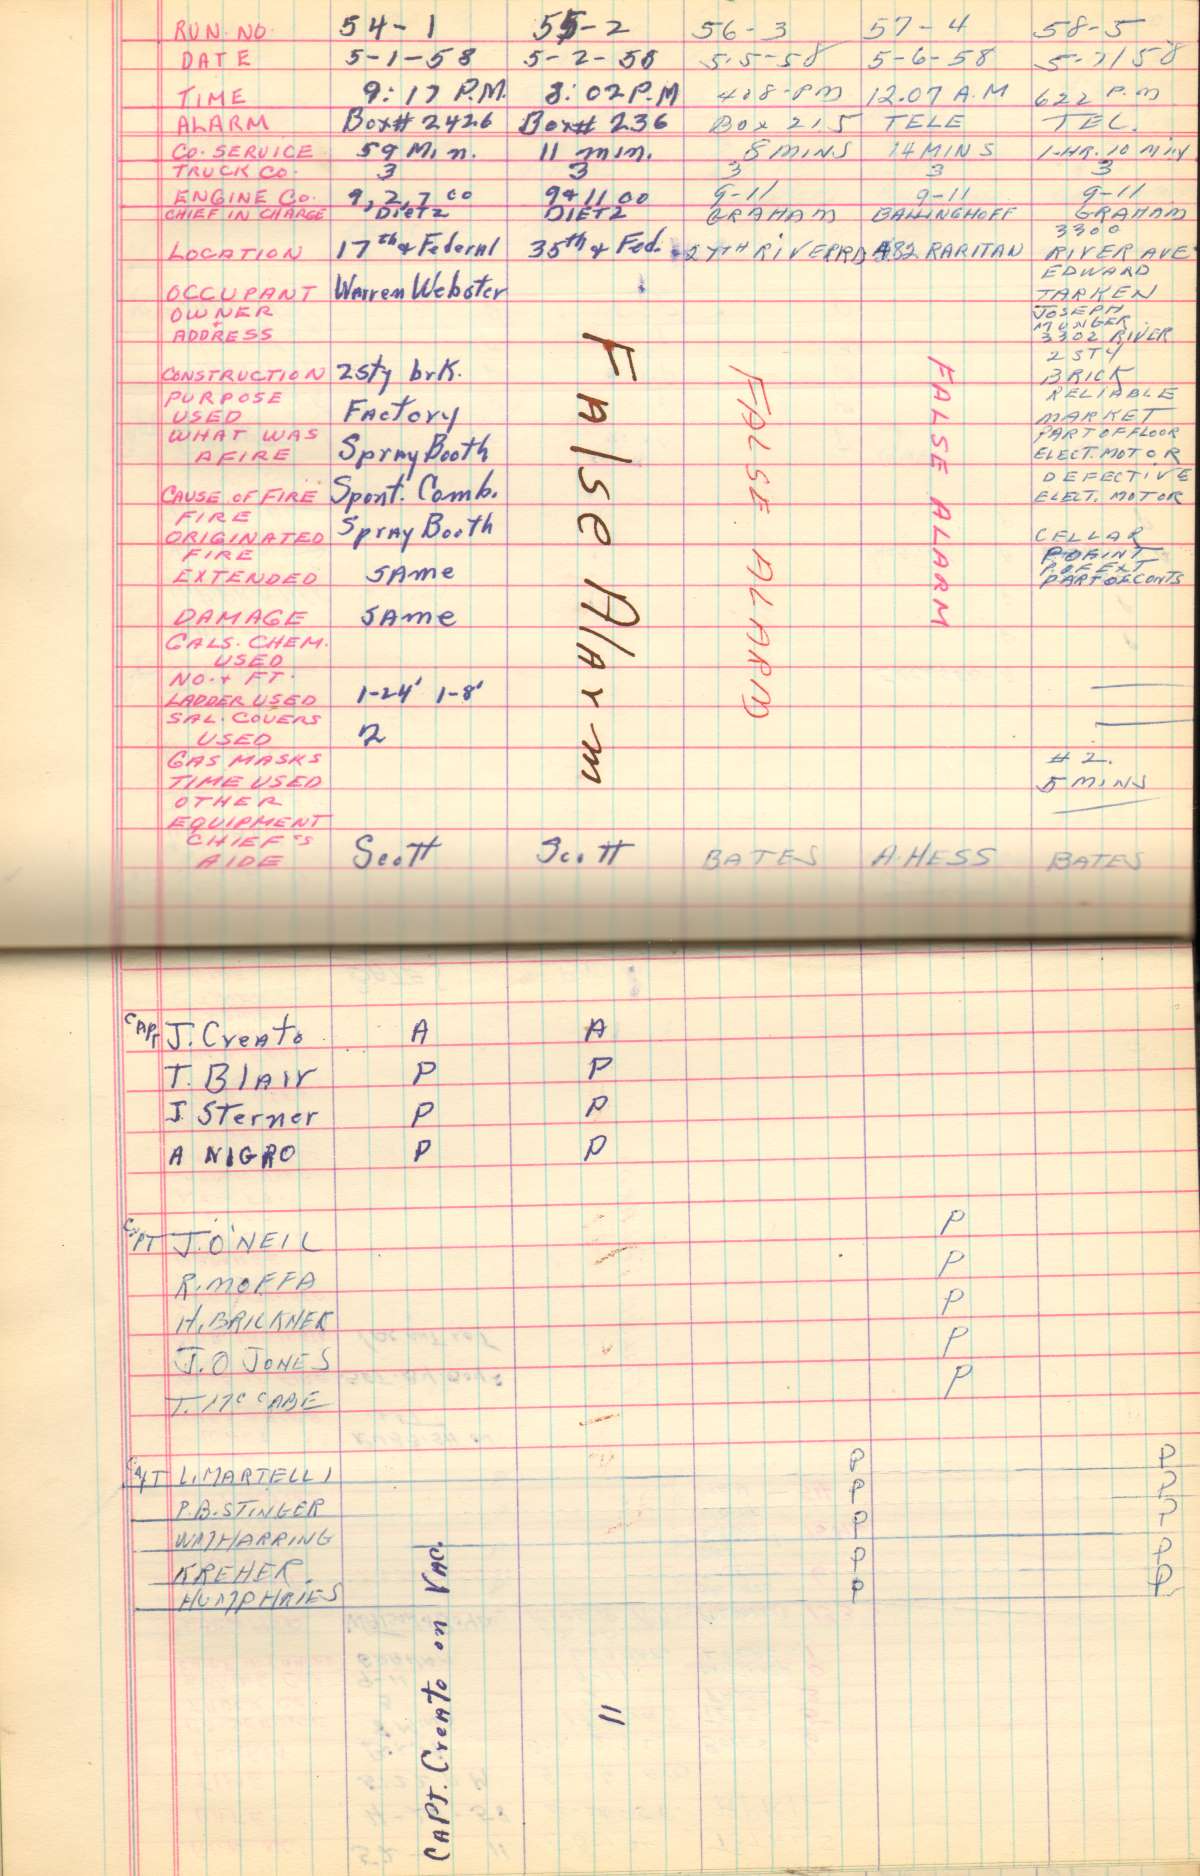 RUN. NO. 54-1 55-2 56-3 57-4 58-5
DATE 5-1-58 5-2-58 5-5-58 5-6-58 5-7/58
TIME 9:17 P.M. 8:02 P.M 4:18-PM 12.07 A.M 622 P.M
ALARM Box# 2426 Box# 236 Box 215 TELE TEL.
CO. SERVICE 59 Min. 11 min. 8 MINS 14 MINS 1-HR. 10 Min
TRUCK CO. 3 3 3 3 3
ENGINE CO. 9, 2, 7 co 9 & 11 co 9-11 9-11 9-11
CHIEF IN CHARGE DIETZ DIETZ GRAHAM BALLINGHOFF GRAHAM
3300
LOCATION 17th & Federal 35th & Fed. 27TH RIVER RD 482 RARITAN RIVER AVE
EDWARD
OCCUPANT Warren Webster TARKEN
OWNER JOSEPH
& MUNGER
ADDRESS 3302 RIVER
2 STY
CONSTRUCTION 2sty brk. BRICK
PURPOSE RELIABLE
USED Factory MARKET
WHAT WAS PART OF FLOOR
AFIRE Spray Booth ELECT. MOTOR
DEFECTIVE
CAUSE OF FIRE Spont. Comb. ELECT. MOTOR
FIRE
ORIGINATED Spray Booth CELLAR
FIRE P. OF EXT
EXTENDED SAME PART OF CONTS
DAMAGE SAME
GALS. CHEM.
USED
NO. & FT.
LADDER USED 1-24' 1-8'
SAL. COVERS
USED 2
GAS MASKS # 2.
TIME USED 5 MINS
OTHER
EQUIPMENT
CHIEF'S
AIDE Scott Scott BATES A. HESS BATES
False Alarm
FALSE ALARM
FALSE ALARM
CAPT J. Creato A A
T. Blair P P
J. Sterner P P
A NIGRO P P
CAPT J. O'NEIL P
R. MOFFA P
H. BRICKNER P
J. O JONES P
T. McCABE P
CAPT L. MARTELLI P P
P. B. STINGER P P
WM HARRING P P
KREHER P P
HUMPHRIES P P
CAPT. Creato on VAC.
"